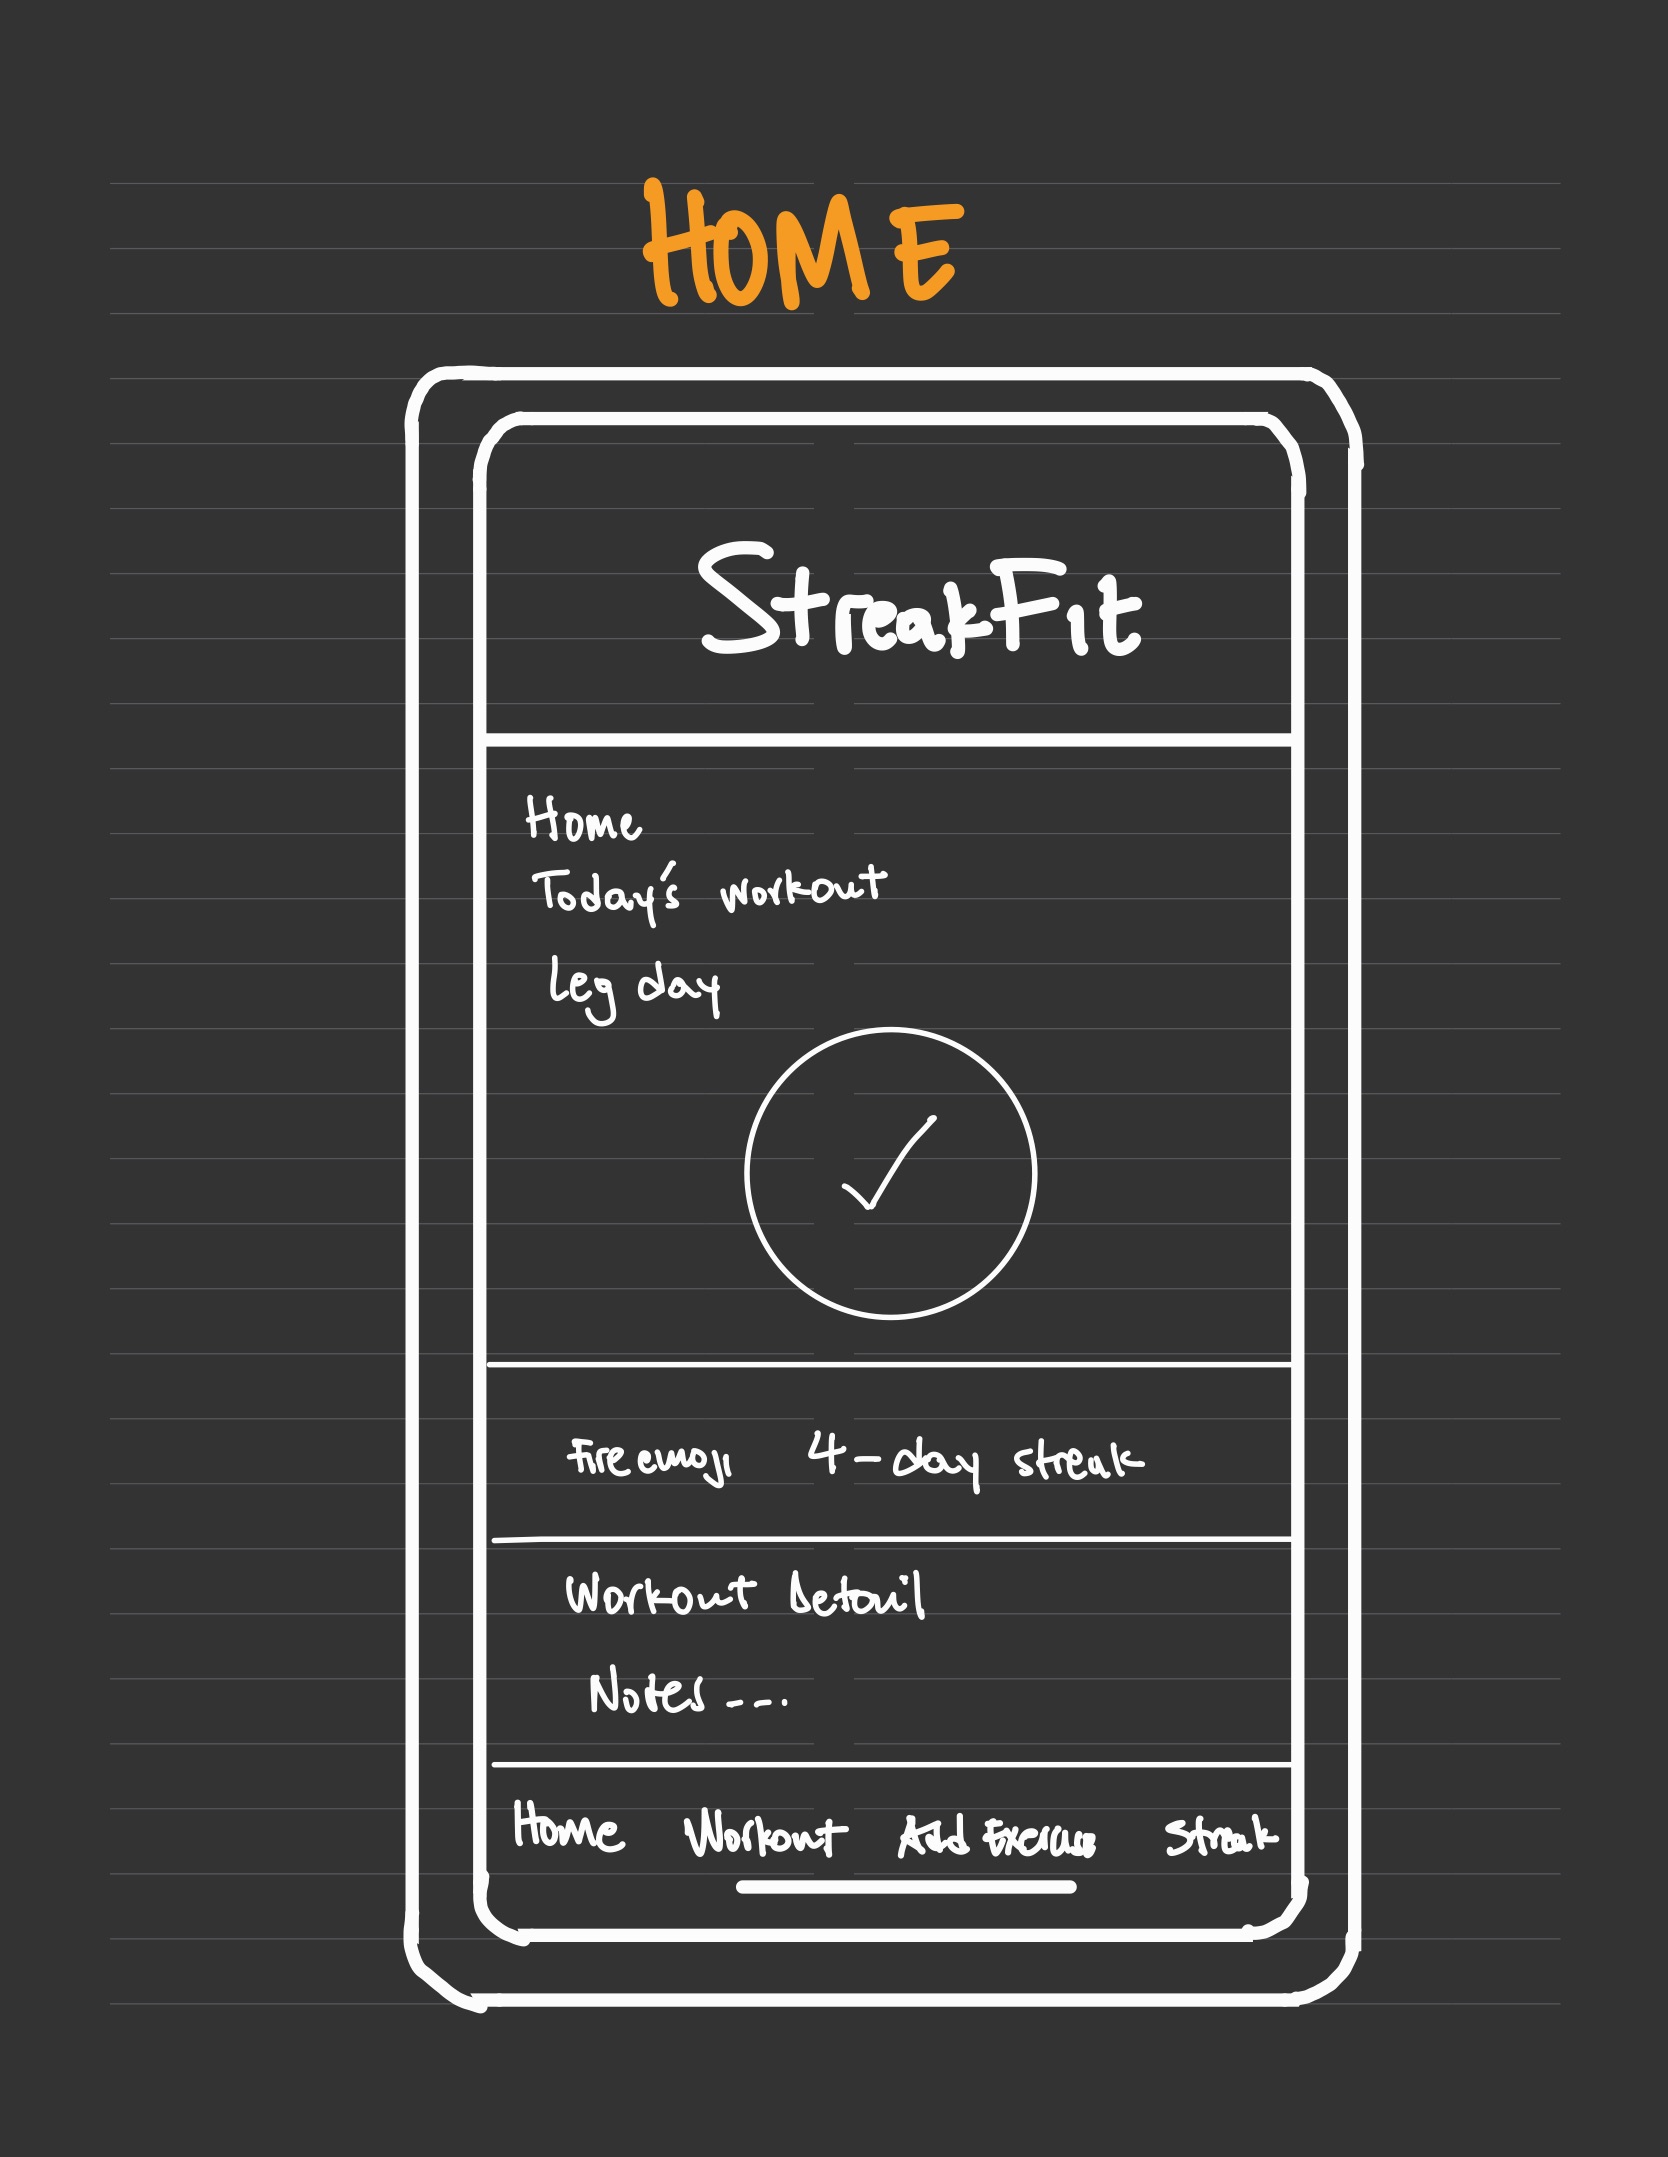 HOME
StreakFit
Home
Today's workout
Leg day
Fire emoji 4-day streak
Workout Detail
Notes ---.
Home Workout Add Exercise Streak